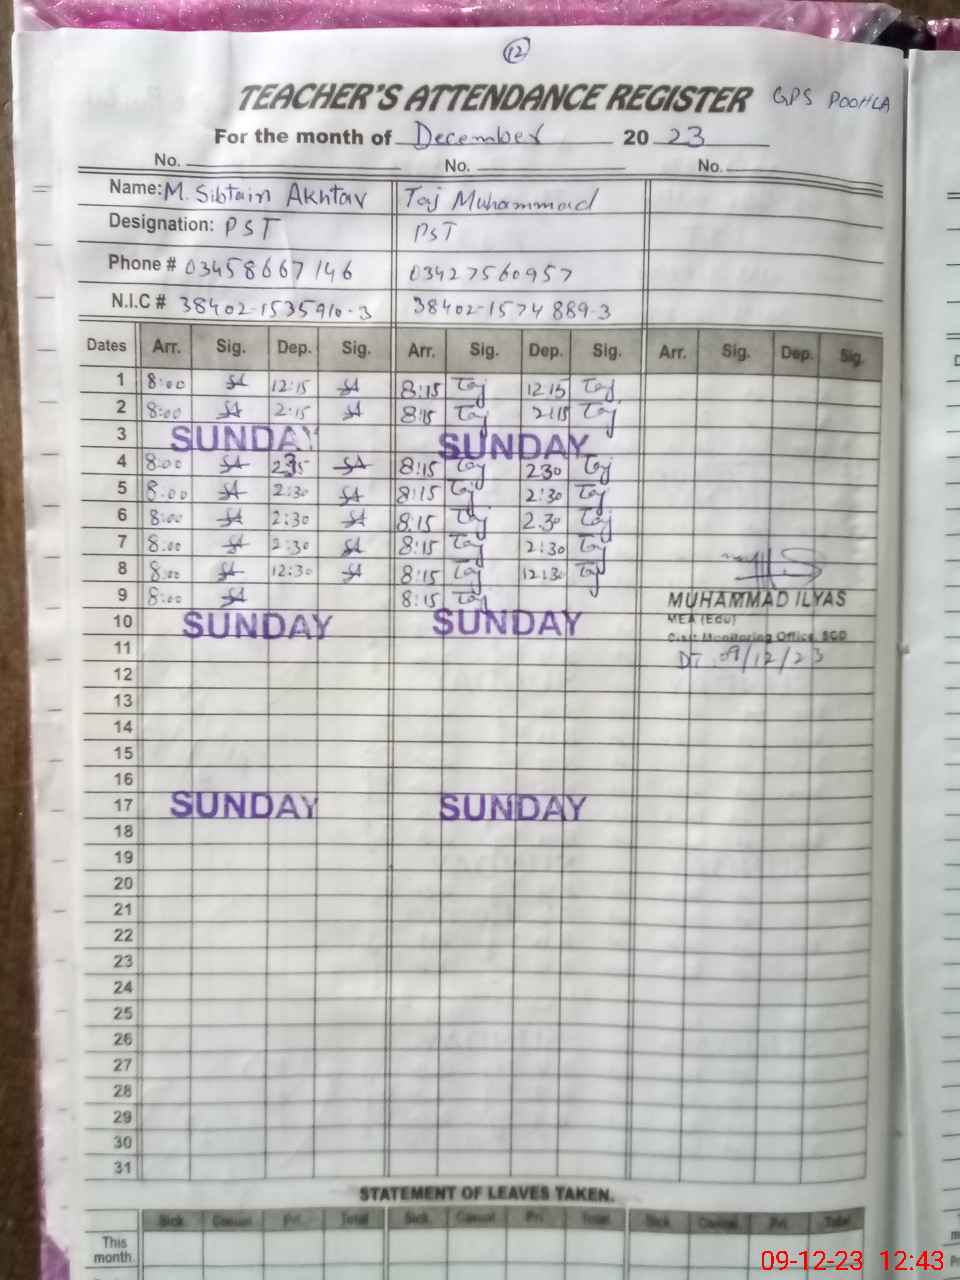 12
TEACHER'S ATTENDANCE REGISTER GPS POOHLA
For the month of December 20 23
No. No. No.
Name: M. Sibtain Akhtar Taj Muhammad
Designation: PST PST
Phone # 03458667146 03427560957
N.I.C # 38402-1535910-3 38402-1574889-3
Dates Arr. Sig. Dep. Sig. Arr. Sig. Dep. Sig. Arr. Sig. Dep. Sig.
1 8:00 SA 12:15 SA 8:15 Taj 12:15 Taj
2 8:00 SA 2:15 SA 8:15 Taj 2:15 Taj
3 SUNDAY SUNDAY
4 8:00 SA SA 8:15 Taj 230 Taj
5 8:00 SA 2:30 SA 8:15 Taj 2:30 Taj
6 8:00 SA 2:30 SA 8:15 Taj 2:30 Taj
7 8:00 SA 2:30 SA 8:15 Taj 2:30 Taj
8 8:00 SA 12:30 SA 8:15 Taj 12:30 Taj
9 8:00 SA 8:15 Taj MUHAMMAD ILYAS
MEA (Edu)
10 SUNDAY SUNDAY Monitoring Office, SGD
11 DT 09/12/23
12
13
14
15
16
17 SUNDAY SUNDAY
18
19
20
21
22
23
24
25
26
27
28
29
30
31
STATEMENT OF LEAVES TAKEN.
Sick Casual Pri. Total Sick Casual Pri Total Sick Casual Pri. Total
This month.
09-12-23 12:43